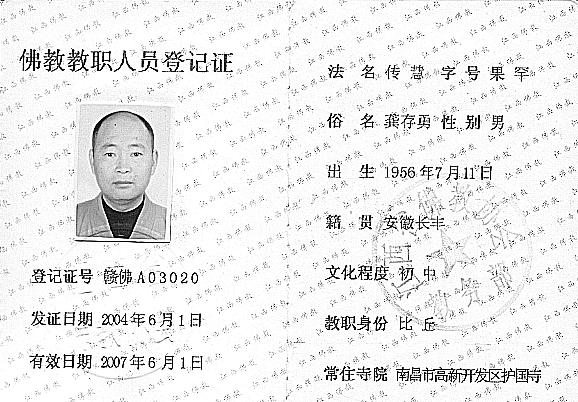 佛教教职人员登记证
登记证号 赣佛A03020
发证日期 2004年6月1日
有效日期 2007年6月1日
法名 传慧 字号 果罕
俗名 龚存勇 性别 男
出生 1956年7月11日
籍贯 安徽长丰
文化程度 初中
教职身份 比丘
常住寺院 南昌市高新开发区护国寺